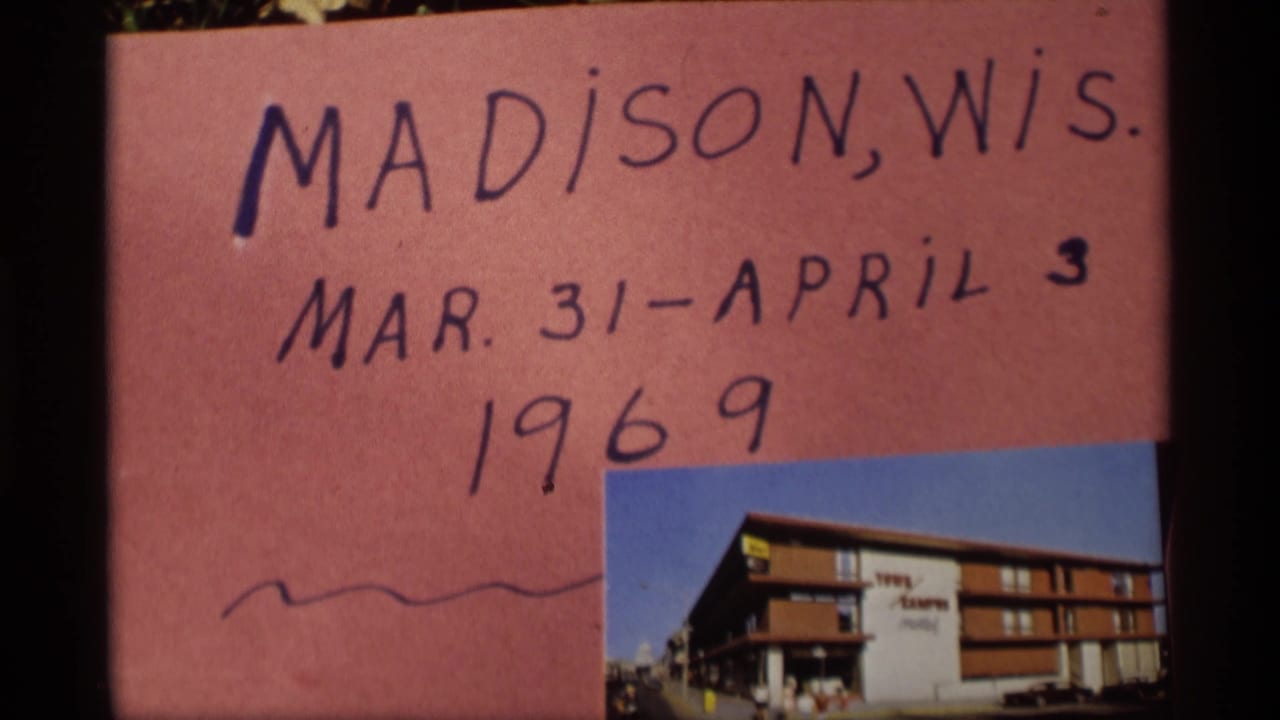 MADISON, WIS.
MAR. 31-APRIL 3
1969
TOWN
CAMPUS
Motel